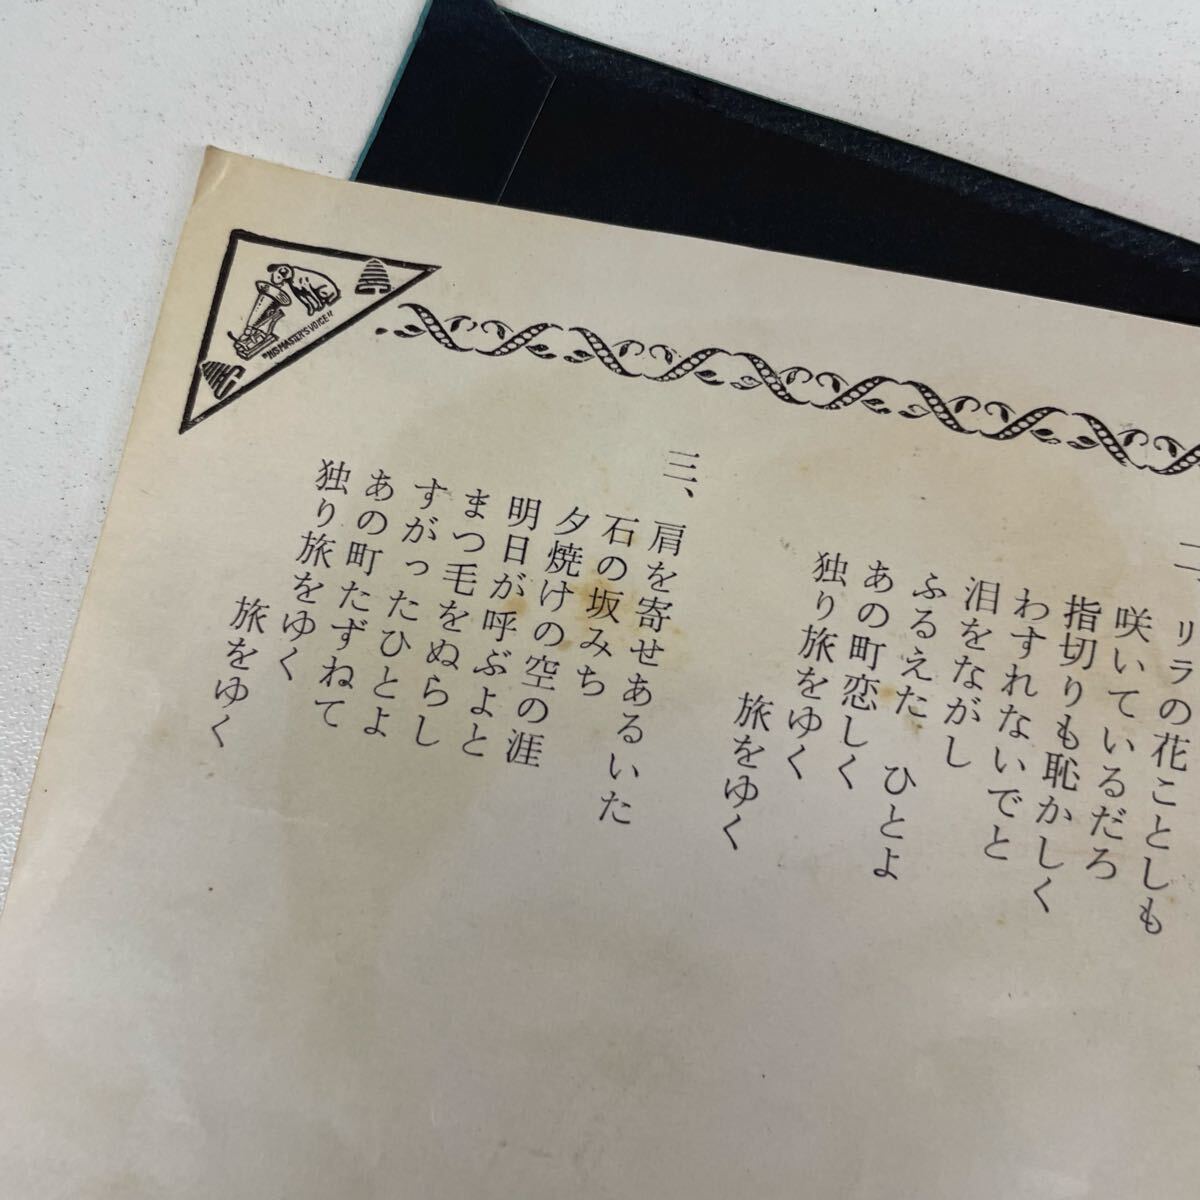 "HIS MASTER'S VOICE"
二、リラの花ことしも
咲いているだろ
指切りも恥かしく
わすれないでと
泪をながし
ふるえた ひとよ
あの町恋しく
独り旅をゆく
旅をゆく
三、肩を寄せあるいた
石の坂みち
夕焼けの空の涯
明日が呼ぶよと
まつ毛をぬらし
すがったひとよ
あの町たずねて
独り旅をゆく
旅をゆく